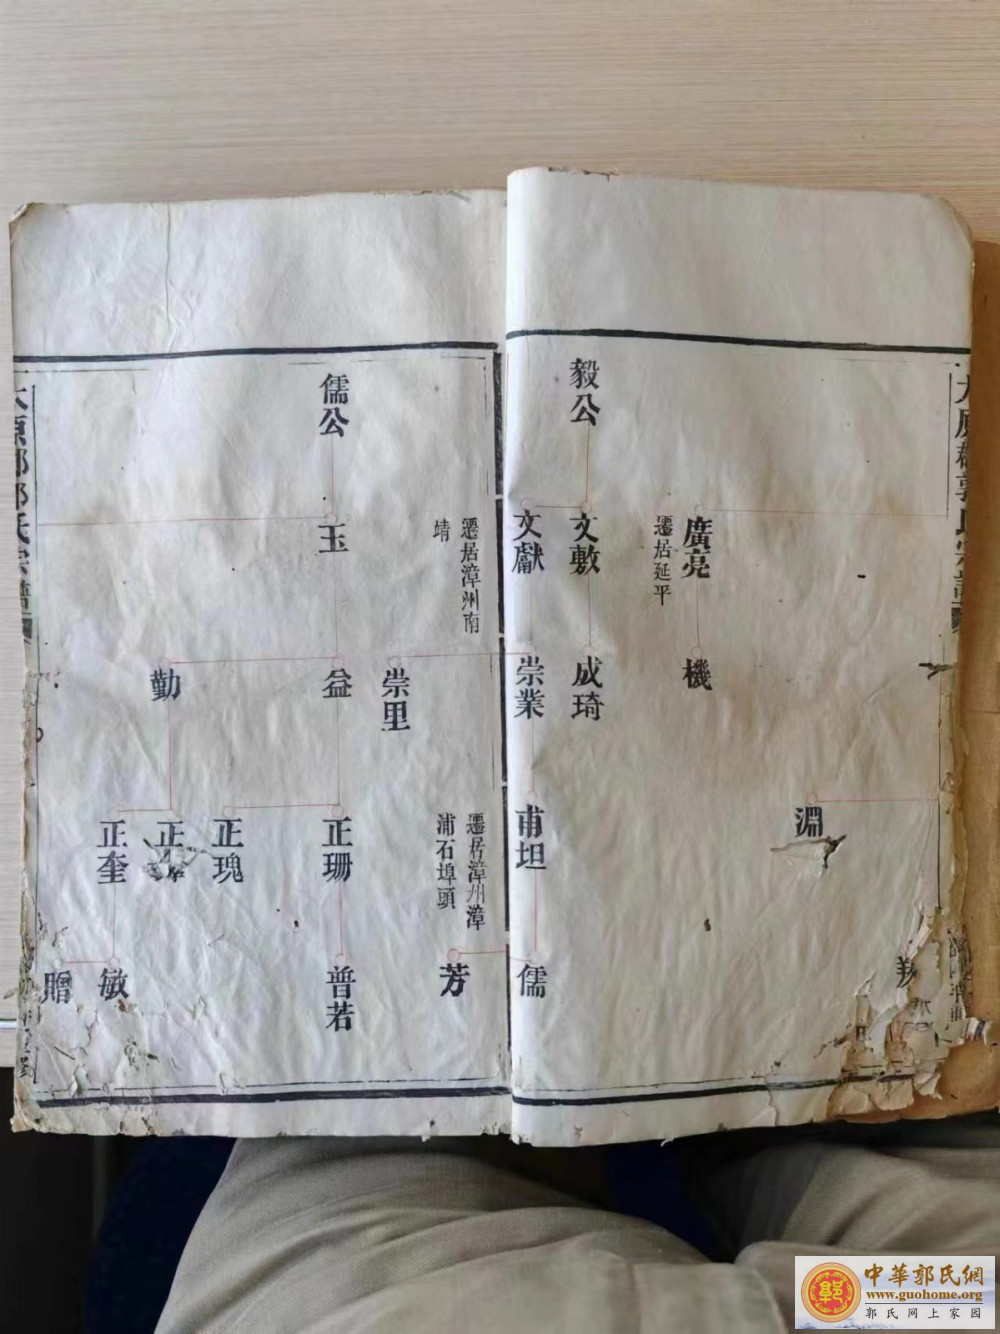 太原郡郭氏宗譜
毅公
廣亮
遷居延平
文敷
文獻
機
成琦
崇業
淵
甫坦
儒
遷居漳州南
靖
崇里
遷居漳州漳
浦石埠頭
芳
儒公
玉
益
勤
正珊
正瑰
正
正奎
普若
敏
贈
太原郡郭氏宗譜
中華郭氏網
www.guohome.org
郭氏网上家园